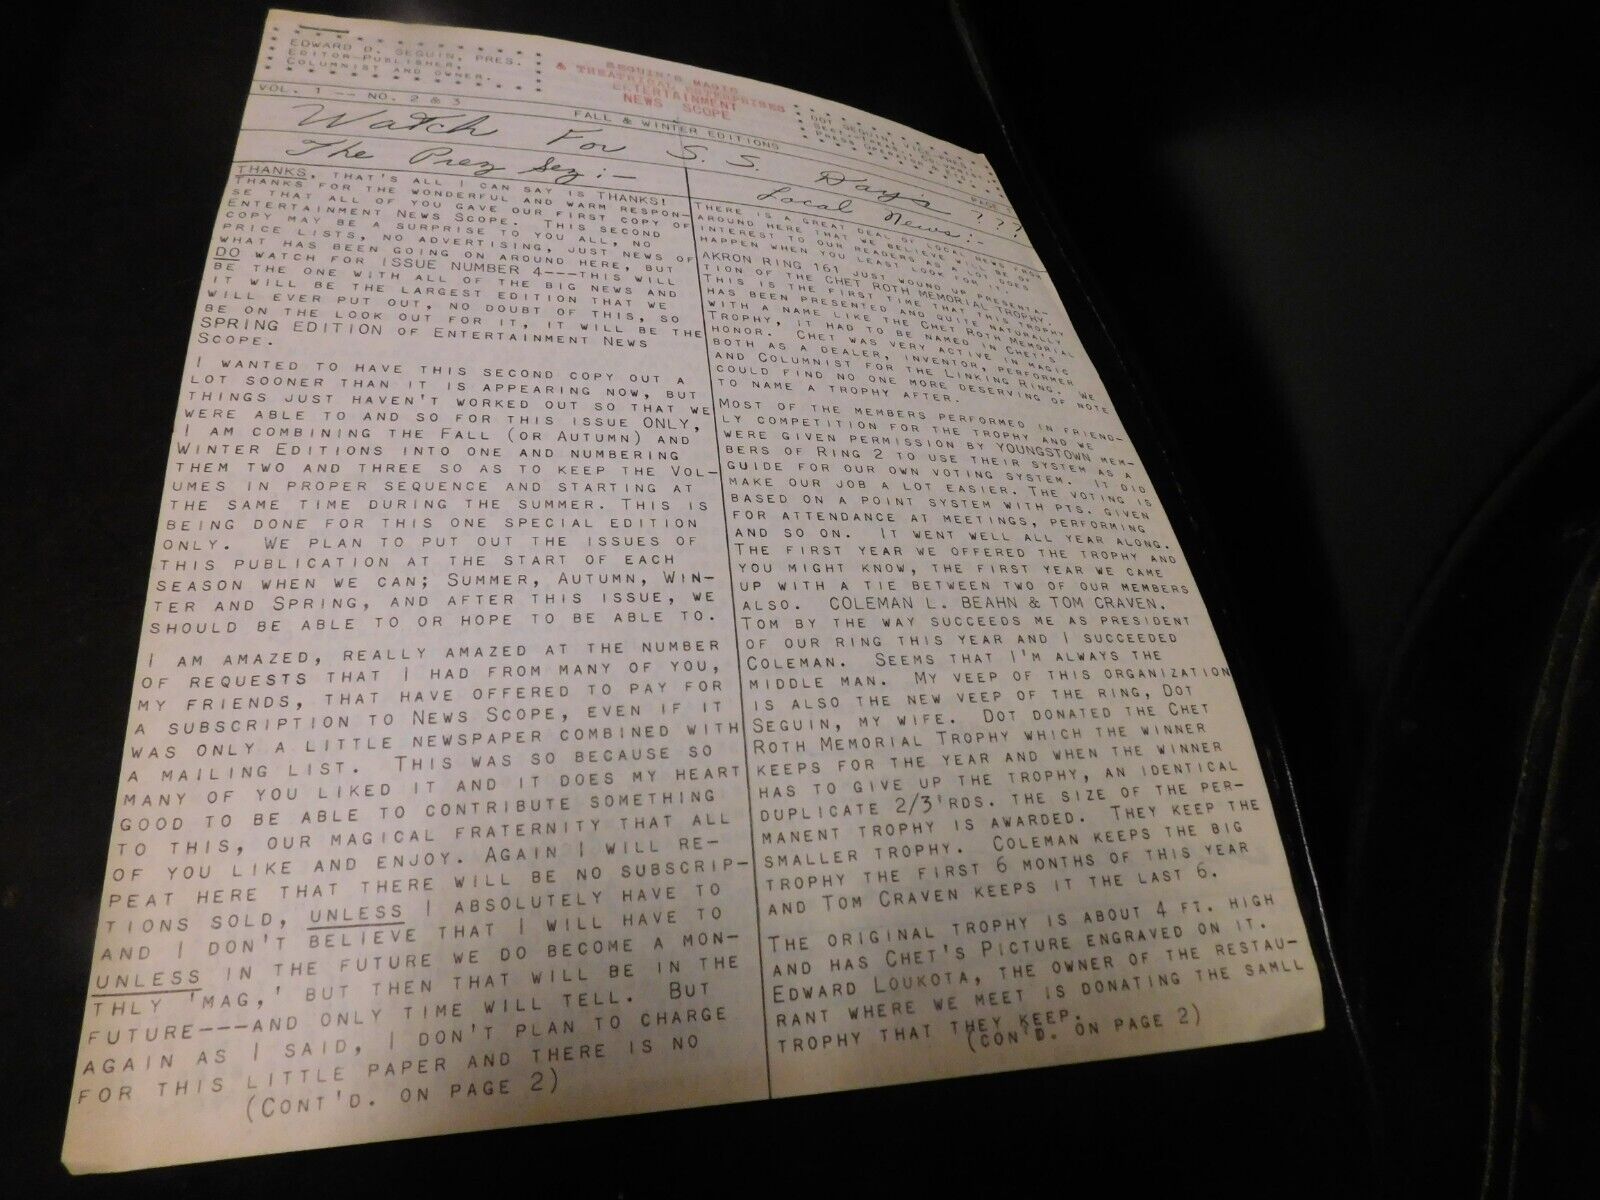 EDWARD D. SEGUIN, PRES.
EDITOR-PUBLISHER,
COLUMNIST AND OWNER.
SEGUIN'S MAGIC
& THEATRICAL ENTERPRISES
ENTERTAINMENT
NEWS SCOPE
DOT SEGUIN, VICE-PRES.
VOL. 1 -- NO. 2 & 3
FALL & WINTER EDITIONS
PAGE 1
Watch For S. S. Day's ???
The Prez Sez:-
THANKS, THAT'S ALL I CAN SAY IS THANKS!
THANKS FOR THE WONDERFUL AND WARM RESPON-
SE THAT ALL OF YOU GAVE OUR FIRST COPY OF
ENTERTAINMENT NEWS SCOPE. THIS SECOND
COPY MAY BE A SURPRISE TO YOU ALL, NO
PRICE LISTS, NO ADVERTISING, JUST NEWS OF
WHAT HAS BEEN GOING ON AROUND HERE, BUT
DO WATCH FOR ISSUE NUMBER 4---THIS WILL
BE THE ONE WITH ALL OF THE BIG NEWS AND
IT WILL BE THE LARGEST EDITION THAT WE
WILL EVER PUT OUT, NO DOUBT OF THIS, SO
BE ON THE LOOK OUT FOR IT, IT WILL BE THE
SPRING EDITION OF ENTERTAINMENT NEWS
SCOPE.
I WANTED TO HAVE THIS SECOND COPY OUT A
LOT SOONER THAN IT IS APPEARING NOW, BUT
THINGS JUST HAVEN'T WORKED OUT SO THAT WE
WERE ABLE TO AND SO FOR THIS ISSUE ONLY,
I AM COMBINING THE FALL (OR AUTUMN) AND
WINTER EDITIONS INTO ONE AND NUMBERING
THEM TWO AND THREE SO AS TO KEEP THE VOL-
UMES IN PROPER SEQUENCE AND STARTING AT
THE SAME TIME DURING THE SUMMER. THIS IS
BEING DONE FOR THIS ONE SPECIAL EDITION
ONLY. WE PLAN TO PUT OUT THE ISSUES OF
THIS PUBLICATION AT THE START OF EACH
SEASON WHEN WE CAN; SUMMER, AUTUMN, WIN-
TER AND SPRING, AND AFTER THIS ISSUE, WE
SHOULD BE ABLE TO OR HOPE TO BE ABLE TO.
I AM AMAZED, REALLY AMAZED AT THE NUMBER
OF REQUESTS THAT I HAD FROM MANY OF YOU,
MY FRIENDS, THAT HAVE OFFERED TO PAY FOR
A SUBSCRIPTION TO NEWS SCOPE, EVEN IF IT
WAS ONLY A LITTLE NEWSPAPER COMBINED WITH
A MAILING LIST. THIS WAS SO BECAUSE SO
MANY OF YOU LIKED IT AND IT DOES MY HEART
GOOD TO BE ABLE TO CONTRIBUTE SOMETHING
TO THIS, OUR MAGICAL FRATERNITY THAT ALL
OF YOU LIKE AND ENJOY. AGAIN I WILL RE-
PEAT HERE THAT THERE WILL BE NO SUBSCRIP-
TIONS SOLD, UNLESS I ABSOLUTELY HAVE TO
AND I DON'T BELIEVE THAT I WILL HAVE TO
UNLESS IN THE FUTURE WE DO BECOME A MON-
THLY 'MAG,' BUT THEN THAT WILL BE IN THE
FUTURE---AND ONLY TIME WILL TELL. BUT
AGAIN AS I SAID, I DON'T PLAN TO CHARGE
FOR THIS LITTLE PAPER AND THERE IS NO
(CONT'D. ON PAGE 2)
Local News:-
THERE IS A GREAT DEAL OF LOCAL NEWS FROM
AROUND HERE THAT WE BELIEVE WILL BE OF
INTEREST TO OUR READERS AS A LOT DOES
HAPPEN WHEN YOU LEAST LOOK FOR IT.
AKRON RING 161 JUST WOUND UP PRESENTA-
TION OF THE CHET ROTH MEMORIAL TROPHY.
THIS IS THE FIRST TIME THAT THIS TROPHY
HAS BEEN PRESENTED AND QUITE NATURALLY
WITH A NAME LIKE THE CHET ROTH MEMORIAL
TROPHY, IT HAD TO BE NAMED IN CHET'S
HONOR. CHET WAS VERY ACTIVE IN MAGIC
BOTH AS A DEALER, INVENTOR, PERFORMER
AND COLUMNIST FOR THE LINKING RING. WE
COULD FIND NO ONE MORE DESERVING OF NOTE
TO NAME A TROPHY AFTER.
MOST OF THE MEMBERS PERFORMED IN FRIEND-
LY COMPETITION FOR THE TROPHY AND WE
WERE GIVEN PERMISSION BY YOUNGSTOWN MEM-
BERS OF RING 2 TO USE THEIR SYSTEM AS A
GUIDE FOR OUR OWN VOTING SYSTEM. IT DID
MAKE OUR JOB A LOT EASIER. THE VOTING IS
BASED ON A POINT SYSTEM WITH PTS. GIVEN
FOR ATTENDANCE AT MEETINGS, PERFORMING
AND SO ON. IT WENT WELL ALL YEAR ALONG.
THE FIRST YEAR WE OFFERED THE TROPHY AND
YOU MIGHT KNOW, THE FIRST YEAR WE CAME
UP WITH A TIE BETWEEN TWO OF OUR MEMBERS
ALSO. COLEMAN L. BEAHN & TOM CRAVEN.
TOM BY THE WAY SUCCEEDS ME AS PRESIDENT
OF OUR RING THIS YEAR AND I SUCCEEDED
COLEMAN. SEEMS THAT I'M ALWAYS THE
MIDDLE MAN. MY VEEP OF THIS ORGANIZATION
IS ALSO THE NEW VEEP OF THE RING, DOT
SEGUIN, MY WIFE. DOT DONATED THE CHET
ROTH MEMORIAL TROPHY WHICH THE WINNER
KEEPS FOR THE YEAR AND WHEN THE WINNER
HAS TO GIVE UP THE TROPHY, AN IDENTICAL
DUPLICATE 2/3'RDS. THE SIZE OF THE PER-
MANENT TROPHY IS AWARDED. THEY KEEP THE
SMALLER TROPHY. COLEMAN KEEPS THE BIG
TROPHY THE FIRST 6 MONTHS OF THIS YEAR
AND TOM CRAVEN KEEPS IT THE LAST 6.
THE ORIGINAL TROPHY IS ABOUT 4 FT. HIGH
AND HAS CHET'S PICTURE ENGRAVED ON IT.
EDWARD LOUKOTA, THE OWNER OF THE RESTAU-
RANT WHERE WE MEET IS DONATING THE SAMLL
TROPHY THAT THEY KEEP.
(CON'D. ON PAGE 2)